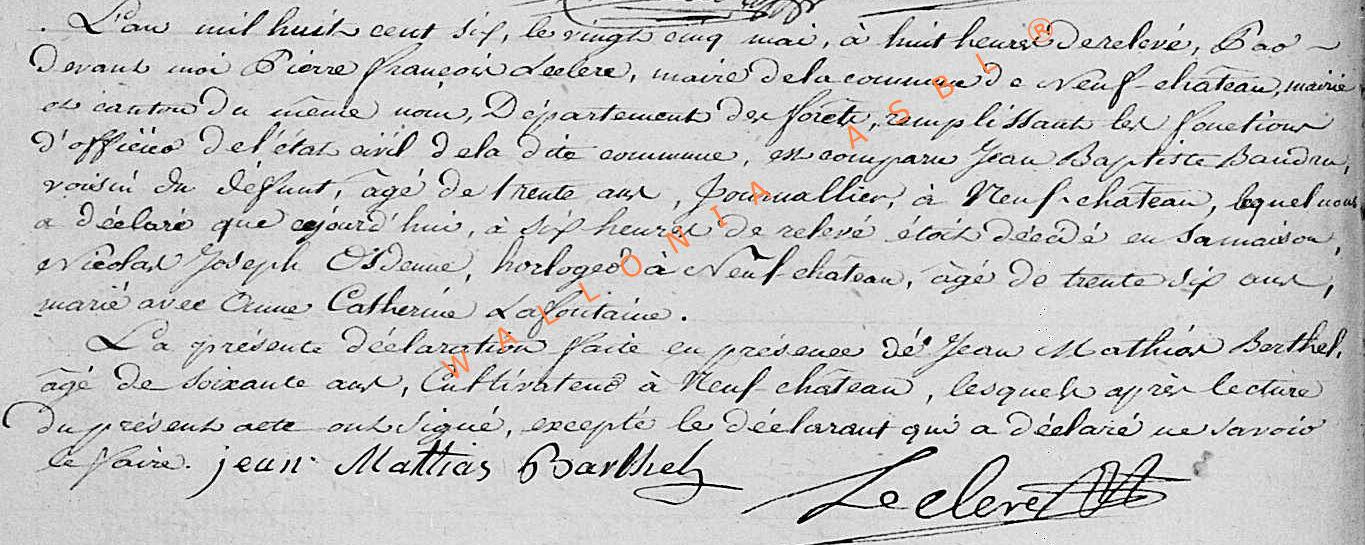 L'an mil huit cent six, le vingt cinq mai, à huit heures de relevé, Par-
devant moi Pierre françois Leclere, maire de la commune de Neuf-château, mairie
et canton du même nom, Département des forêts, remplissant les fonctions
d'officier de l'état civil de la dite commune, est comparu Jean Baptiste Baudru,
voisin du défunt, âgé de trente ans, Journallier, à Neuf-château, lequel nous
a déclaré que cejourd'hui, à six heures de relevé étoit décédé en sa maison,
Nicolas Joseph Osdenne, horloger à Neuf château, âgé de trente six ans,
marié avec Anne Catherine Lafontaine.
La présente déclaration faite en présence de Jean Mathias Berthel,
âgé de soixante ans, Cultivateur à Neuf château, lesquels après lecture
du présent acte ont signé, excepté le déclarant qui a déclaré ne savoir
le faire. jean Mattias Barthel
Leclere
WALLONIA ASBL®